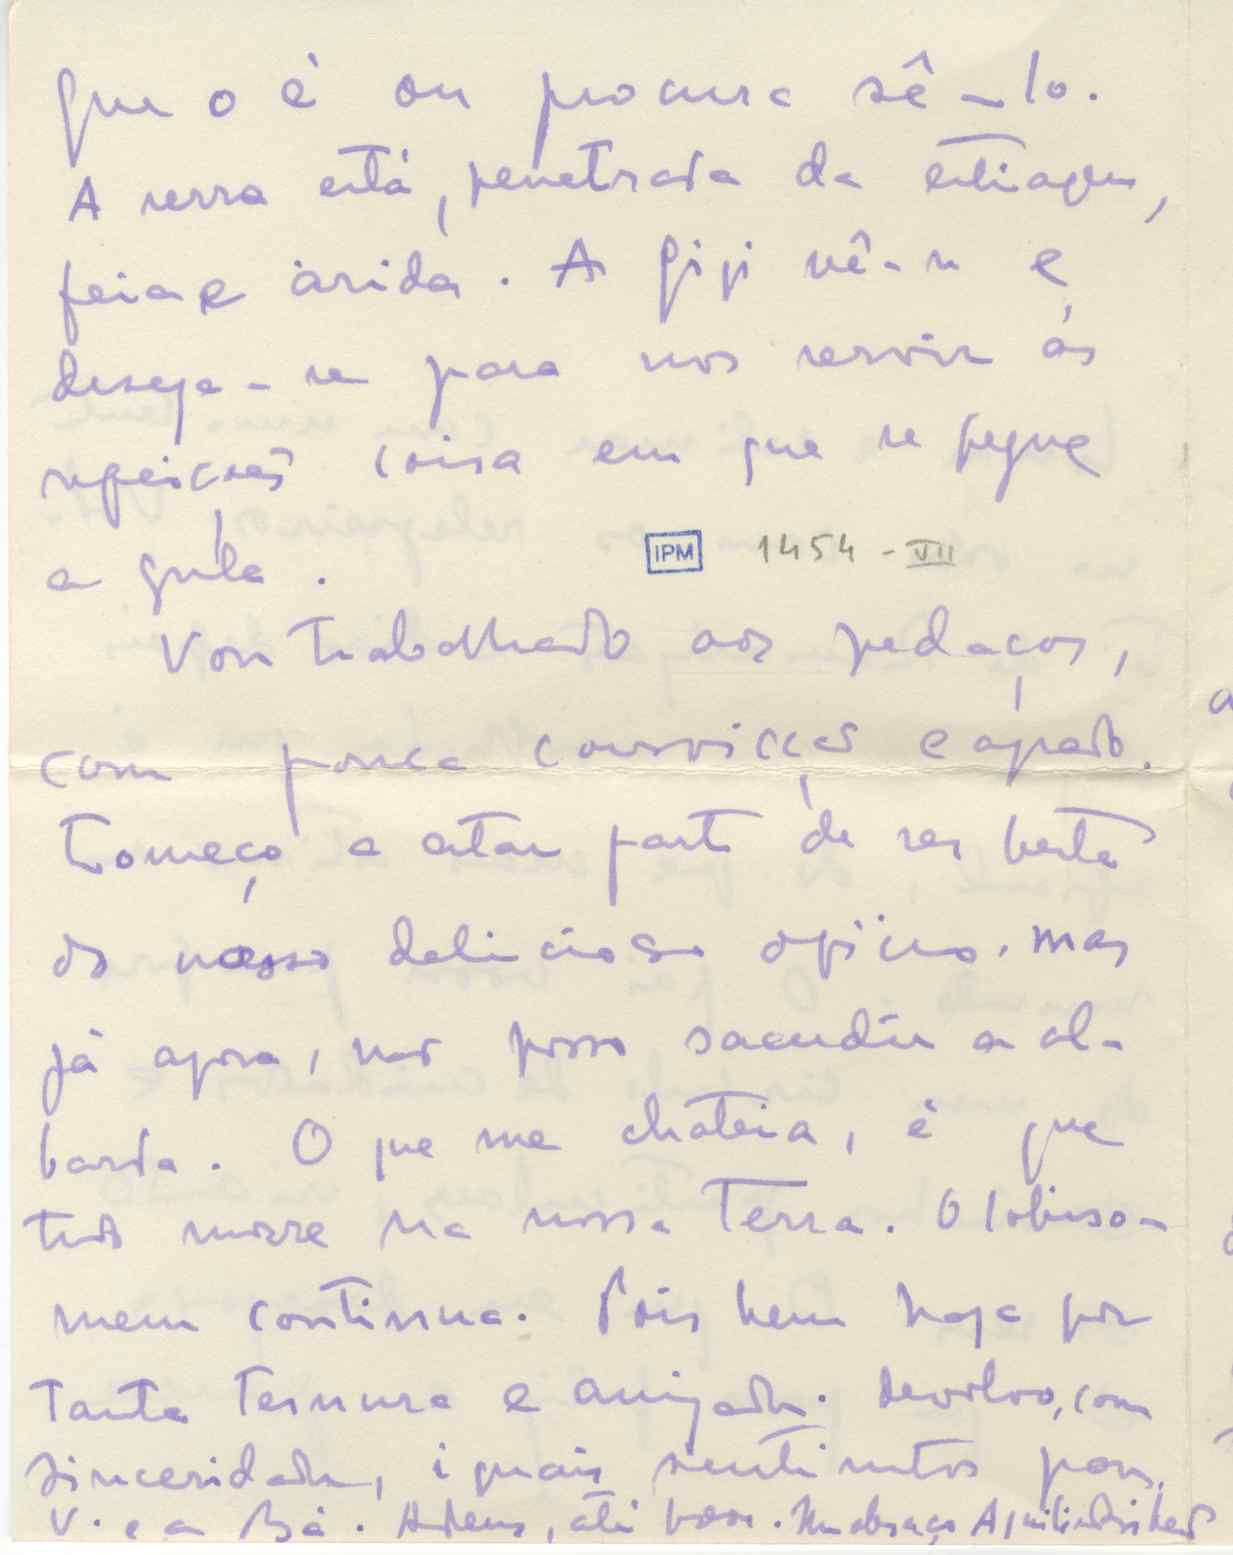 que o é ou procura sê-lo.
A serra está, penetrada da estiagem,
feia e árida. A Gigi vê-se e
deseja-se para nos servir às
refeições coisa em que se pegue
a gula.
IPM 1454-VII
Vou trabalhado aos pedaços,
com pouca convicção e agrado.
Começo a estar farto de ser besta
do nosso delicioso ofício. Mas
já agora, não posso sacudir a al-
barda. O que me chateia, é que
tudo morre na nossa Terra. O lobiso-
mem continua. Pois bem haja por
tanta ternura e amizade. Devolvo, com
sinceridade, iguais sentimentos para
V. e a Bá. Adeus, até breve. Um abraço Aquilino Ribeiro